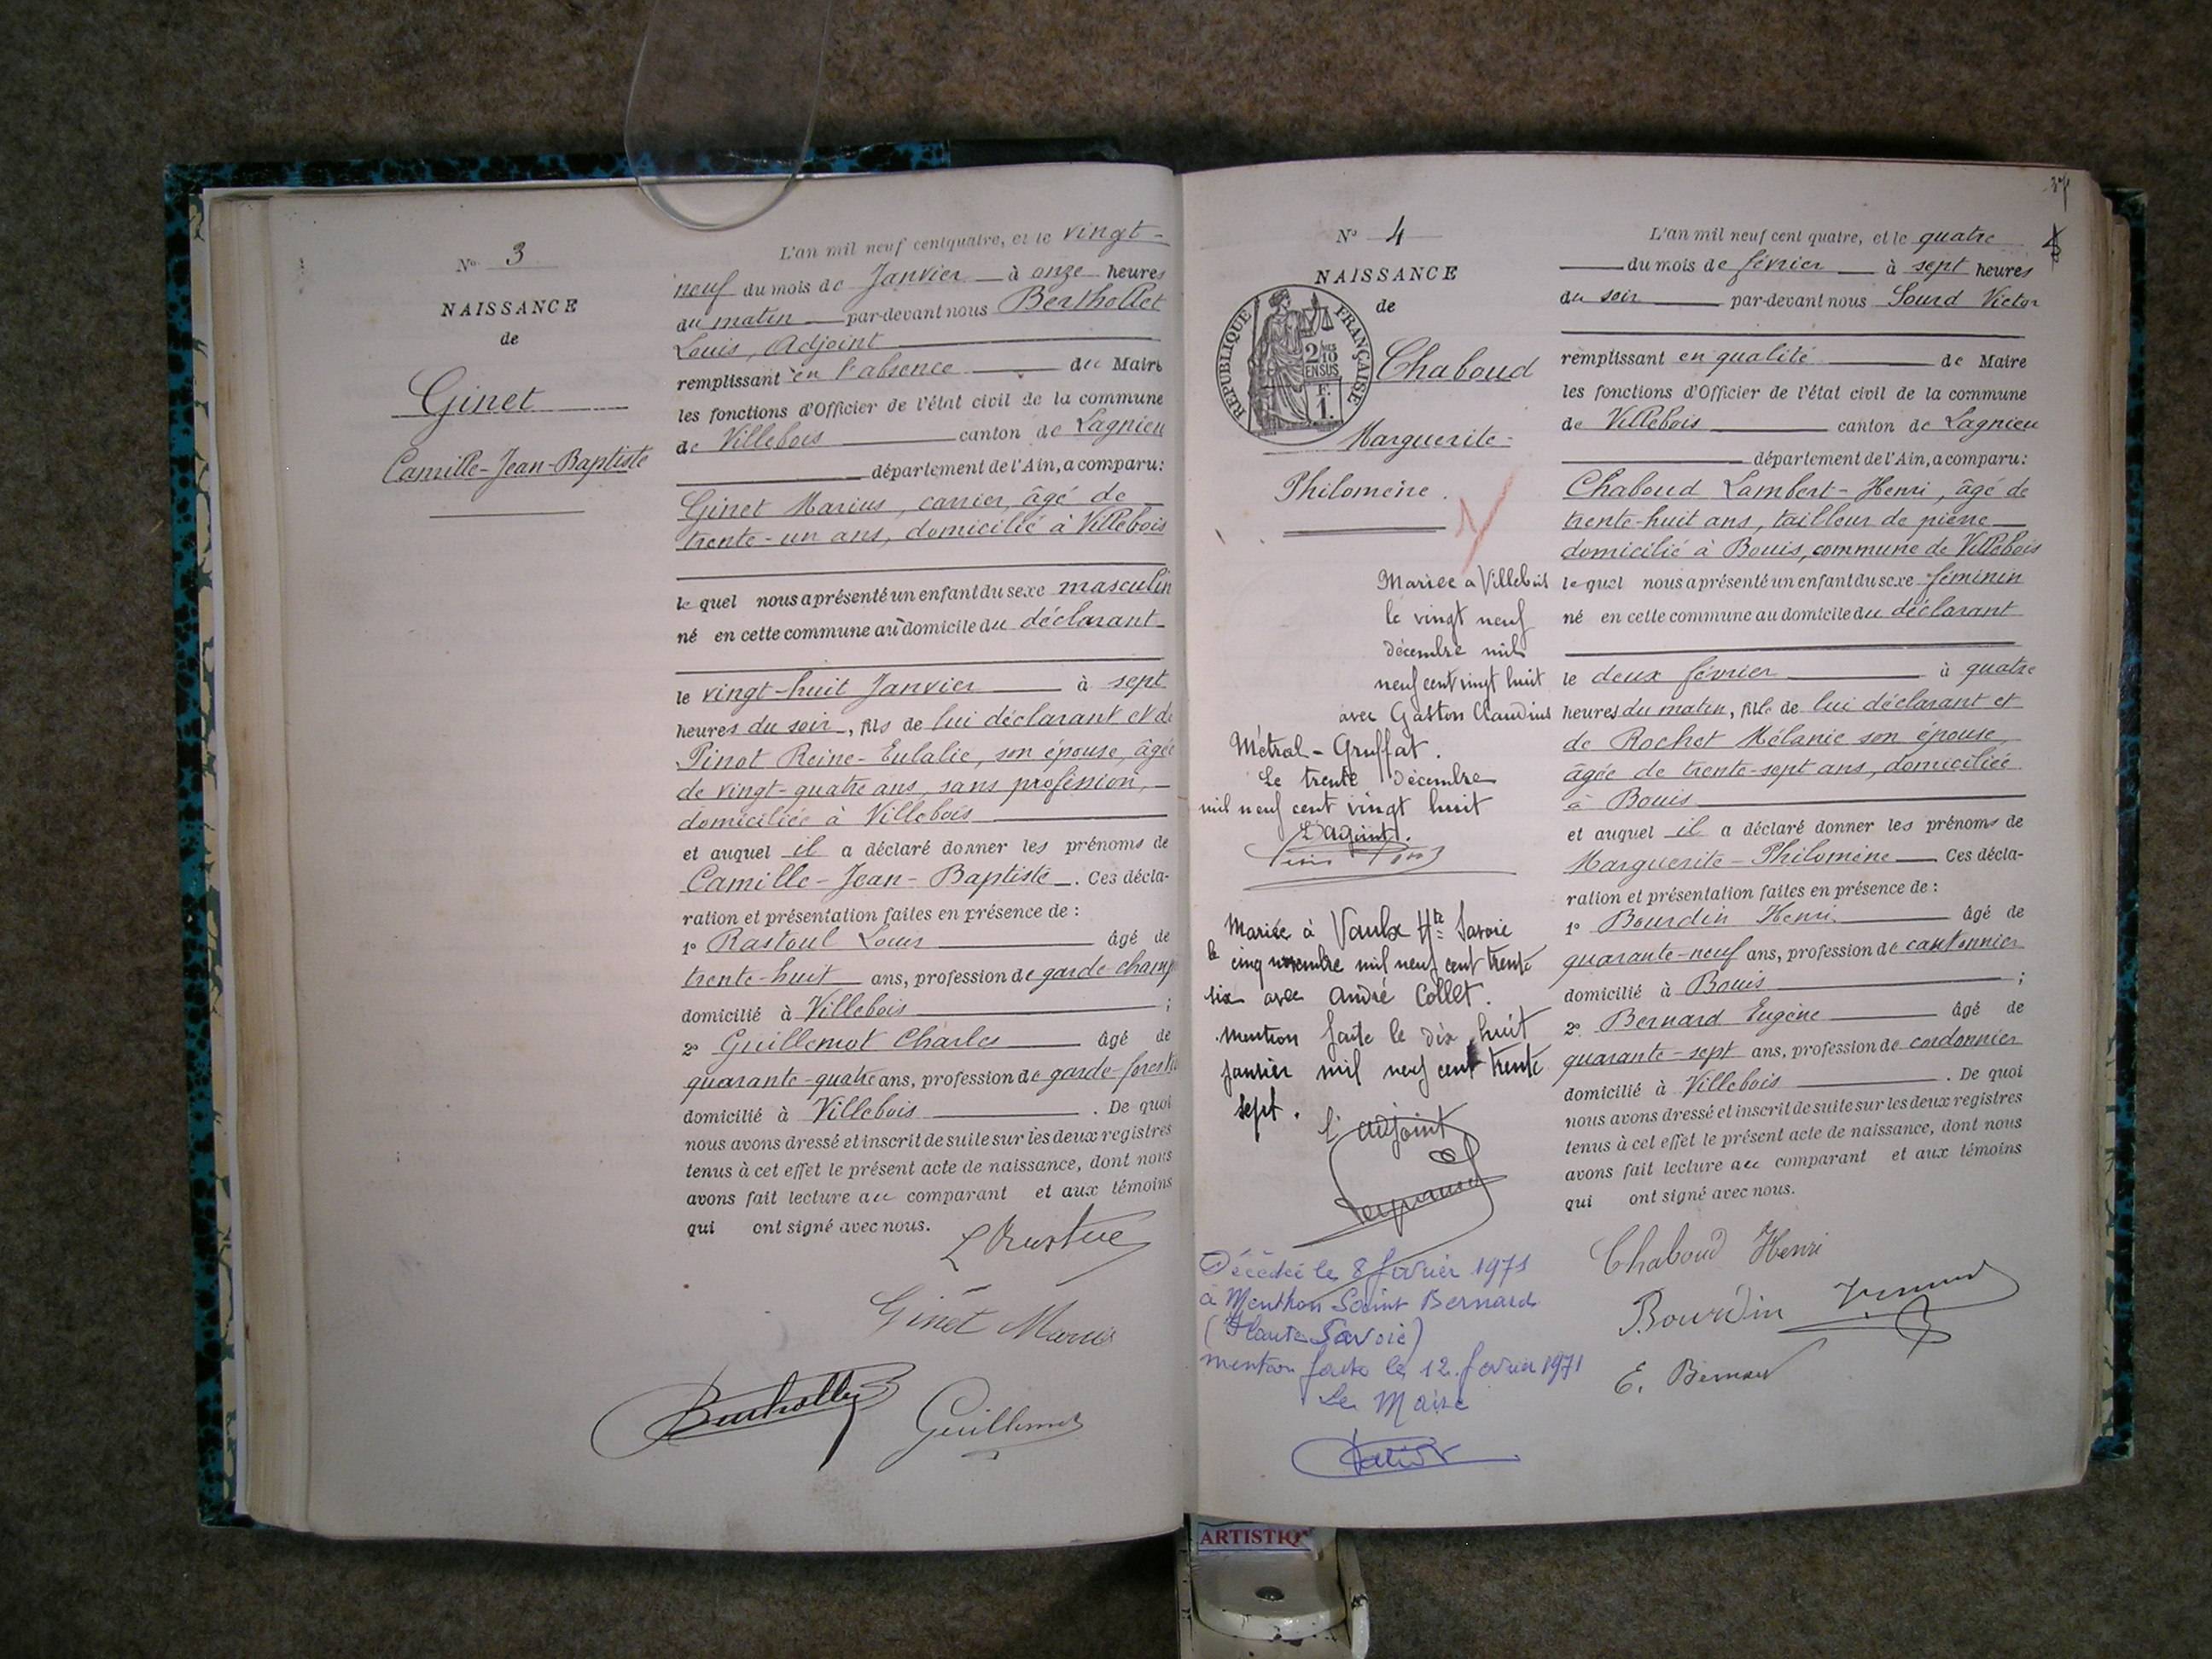 N° 3
NAISSANCE
de
Ginet
Camille-Jean-Baptiste
L'an mil neuf cent quatre, et le vingt-
neuf du mois de Janvier à onze heures
du matin par-devant nous Berthollet
Louis, Adjoint
remplissant en l'absence du Maire
les fonctions d'Officier de l'état civil de la commune
de Villebois canton de Lagnieu
département de l'Ain, a comparu:
Ginet Marius, carrier, âgé de
trente-un ans, domicilié à Villebois
le quel nous a présenté un enfant du sexe masculin
né en cette commune au domicile du déclarant
le vingt-huit Janvier à sept
heures du soir, fils de lui déclarant et de
Pinot Reine-Eulalie, son épouse, âgée
de vingt-quatre ans, sans profession,
domiciliée à Villebois
et auquel il a déclaré donner les prénoms de
Camille-Jean-Baptiste. Ces décla-
ration et présentation faites en présence de :
1° Rastoul Louis âgé de
trente-huit ans, profession de garde-champ
domicilié à Villebois ;
2° Guillemot Charles âgé de
quarante-quatre ans, profession de garde-forestier
domicilié à Villebois . De quoi
nous avons dressé et inscrit de suite sur les deux registres
tenus à cet effet le présent acte de naissance, dont nous
avons fait lecture au comparant et aux témoins
qui ont signé avec nous.
Ginet Marius
Guillemot
N° 4
NAISSANCE
de
REPUBLIQUE FRANÇAISE
2/10
EN SUS
F.
1.
Chaboud
Marguerite-
Philomène.
Mariée a Villebois
le vingt neuf
décembre mil
neuf cent vingt huit
avec Gaston Claudius
Métral-Gruffat.
Le trente décembre
mil neuf cent vingt huit
L'adjoint.
Mariée à Vaulx Hte Savoie
le cinq novembre mil neuf cent trente
six avec André Collet.
mention faite le dix huit
janvier mil neuf cent trente
sept.
L'adjoint
Décédée le 8 février 1971
à Menthon Saint Bernard
(Haute Savoie)
mention faite le 12 février 1971
Le Maire
L'an mil neuf cent quatre, et le quatre
du mois de février à sept heures
du soir par-devant nous Sourd Victor
remplissant en qualité de Maire
les fonctions d'Officier de l'état civil de la commune
de Villebois canton de Lagnieu
département de l'Ain, a comparu:
Chaboud Lambert-Henri, âgé de
trente-huit ans, tailleur de pierre
domicilié à Bouis, commune de Villebois
le quel nous a présenté un enfant du sexe féminin
né en cette commune au domicile du déclarant
le deux février à quatre
heures du matin, fille de lui déclarant et
de Rochet Mélanie son épouse,
âgée de trente-sept ans, domiciliée
à Bouis
et auquel il a déclaré donner les prénoms de
Marguerite-Philomène Ces décla-
ration et présentation faites en présence de :
1° Bourdin Henri âgé de
quarante-neuf ans, profession de cantonnier
domicilié à Bouis ;
2° Bernard Eugène âgé de
quarante-sept ans, profession de cordonnier
domicilié à Villebois . De quoi
nous avons dressé et inscrit de suite sur les deux registres
tenus à cet effet le présent acte de naissance, dont nous
avons fait lecture au comparant et aux témoins
qui ont signé avec nous.
Chaboud Henri
Bourdin
E. Bernard
ARTISTIQ